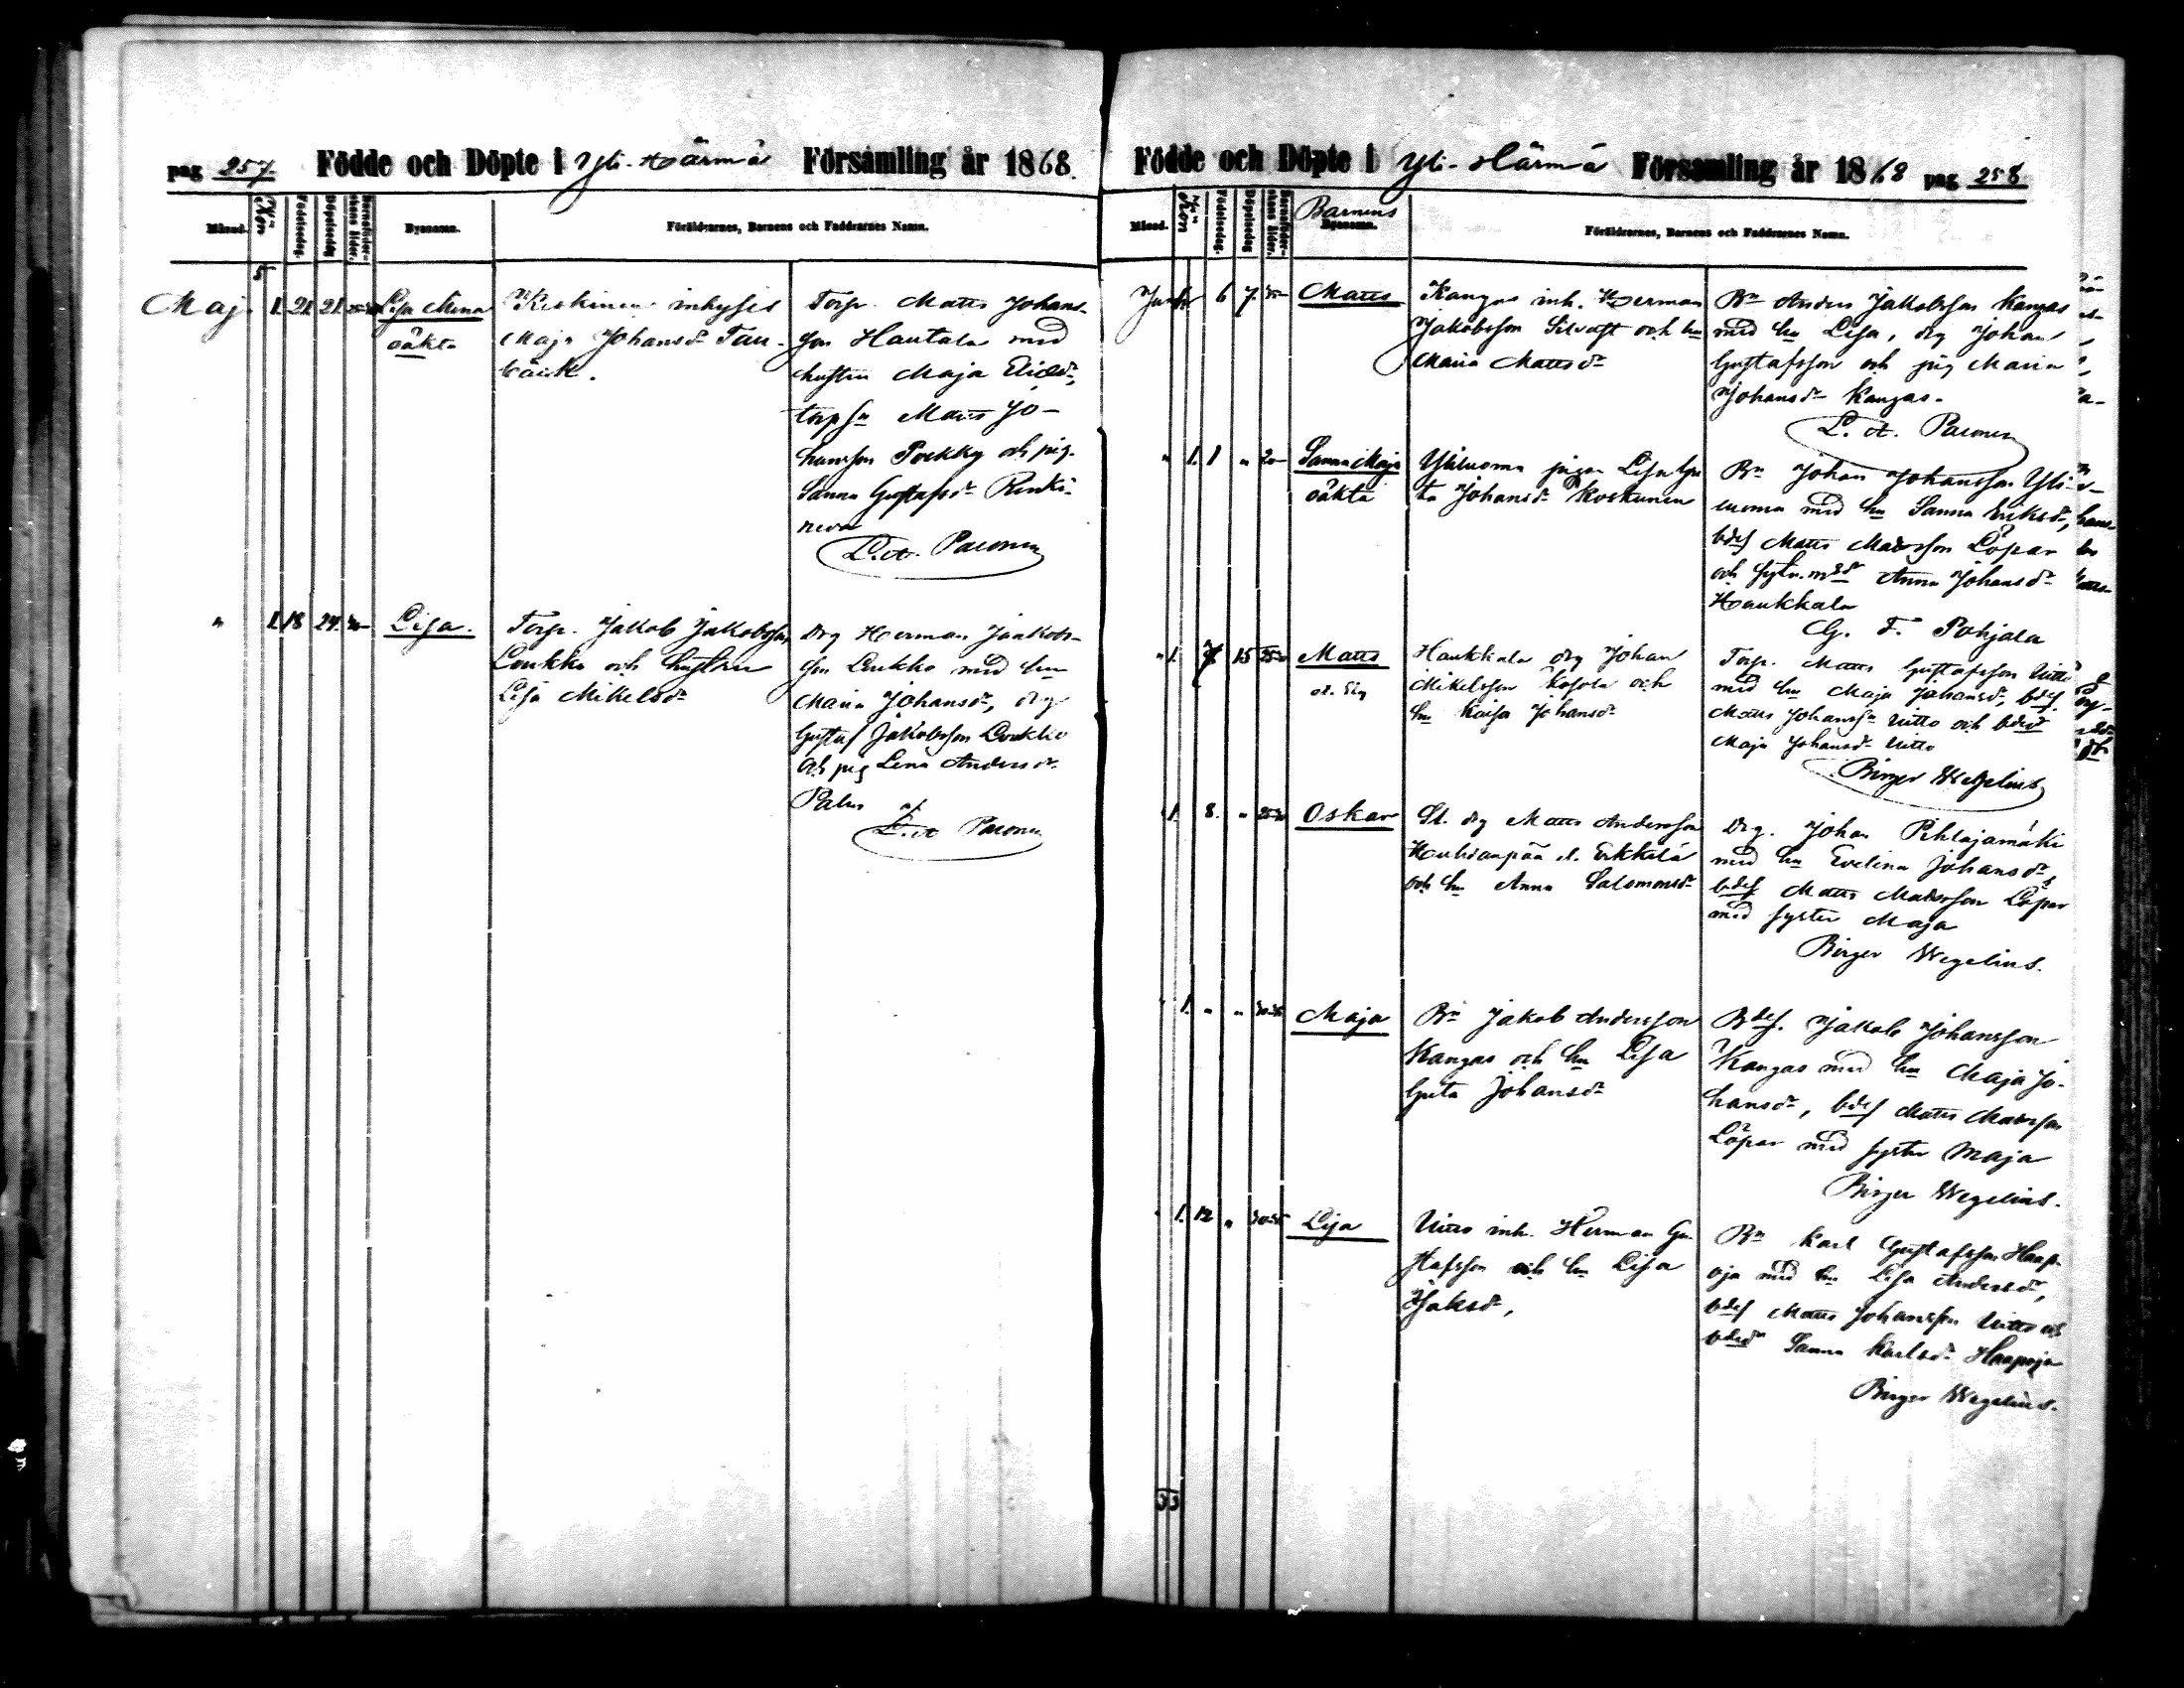 pag 257. Födde och Döpte i Yli-Härmä Församling år 1868.
Månad. Kön Födelsedag. Döpelsedag Barnaföderskans ålder. Bynamn. Föräldrarnes, Barnens och Faddrarnes Namn.
Maj. 1. 21. 21. Lisa Mina
oäkta
Keskinen inhyses
Maja Johansdr
Torp. Matts Johans-
son Hautala med
hustru Maja
torpsn Matts Jo-
hansson Pockky och pig.
Sanna Gustafsdr Renki-
neva
L. A. Paconen
" 1. 18 24. Lisa.
Torp. Jakob Jakobsson
Loukko och hustru
Lisa Mikelsdr
Drg Herman Jaakobs-
son Loukko med hu
Maria Johansdr, drg
Gustaf Jakobsson Loukko
och pig Lena Andersdr
Palm
L. A. Paconen
Födde och Döpte i Yli-Härmä Församling år 1868 pag 258
Månad. Kön Födelsedag. Döpelsedag Barnaföderskans ålder. Barnens
Bynamn. Föräldrarnes, Barnens och Faddrarnes Namn.
6 7. Matts
Kangas inh. Herman
Jakobsson Silvast och hu
Maria Mattsdr
Bn Anders Jakobsson Kangas
med hu Lisa, drg Johan
Gustafsson och pig Maria
Johansdr Kangas.
L. A. Paconen
" 1. 1 " 20 Sanna Maja
oäkta
Yliluoma pigan Lisa Gre
ta Johansdr Koskunen
Bn Johan Johansson Yli-
luoma med hu Sanna Eriksdr,
bdes Matts Matsson Löpar
och Anna Johansdr
Haukkala
G. F. Pohjala
" 1. 7. 15 Matts
Haukkala drg Johan
Mikelsson Kosola och
hu Kaisa Johansdr
Torp. Matts Gustafsson Uitto
med hu Maja Johansdr, bdes
Matts Johanssn Uitto och bdesdr
Maja Johansdr Uitto
Birger Wegelius
" 1. 8. " Oskar
St. drg Matts Andersson
Huhtanpää Erkkilä
och hu Anna Salomonsdr
Drg. Johan Pihlajamäki
med hu Evelina Johansdr,
bdes Matts Matsson Löpar
med syster Maja
Birger Wegelius.
" 1. " " 30-35 Maja
Bn Jakob Andersson
Kangas och hu Lisa
Greta Johansdr
Bdes. Jakob Johansson
Kangas med hu Maja Jo-
hansdr, bdes Matts Matsson
Löpar med syster Maja
Birger Wegelius.
" 1. 12 " 30-35 Lisa
Uitto inh. Herman Gu-
stafsson och hu Lisa
Jaksdr,
Bn Karl Gustafsson Haap-
oja med hu Lisa Andersdr,
bdes Matts Johansson Uitto och
bdesdr Sanna Karlsdr Haapoja
Birger Wegelius.
53